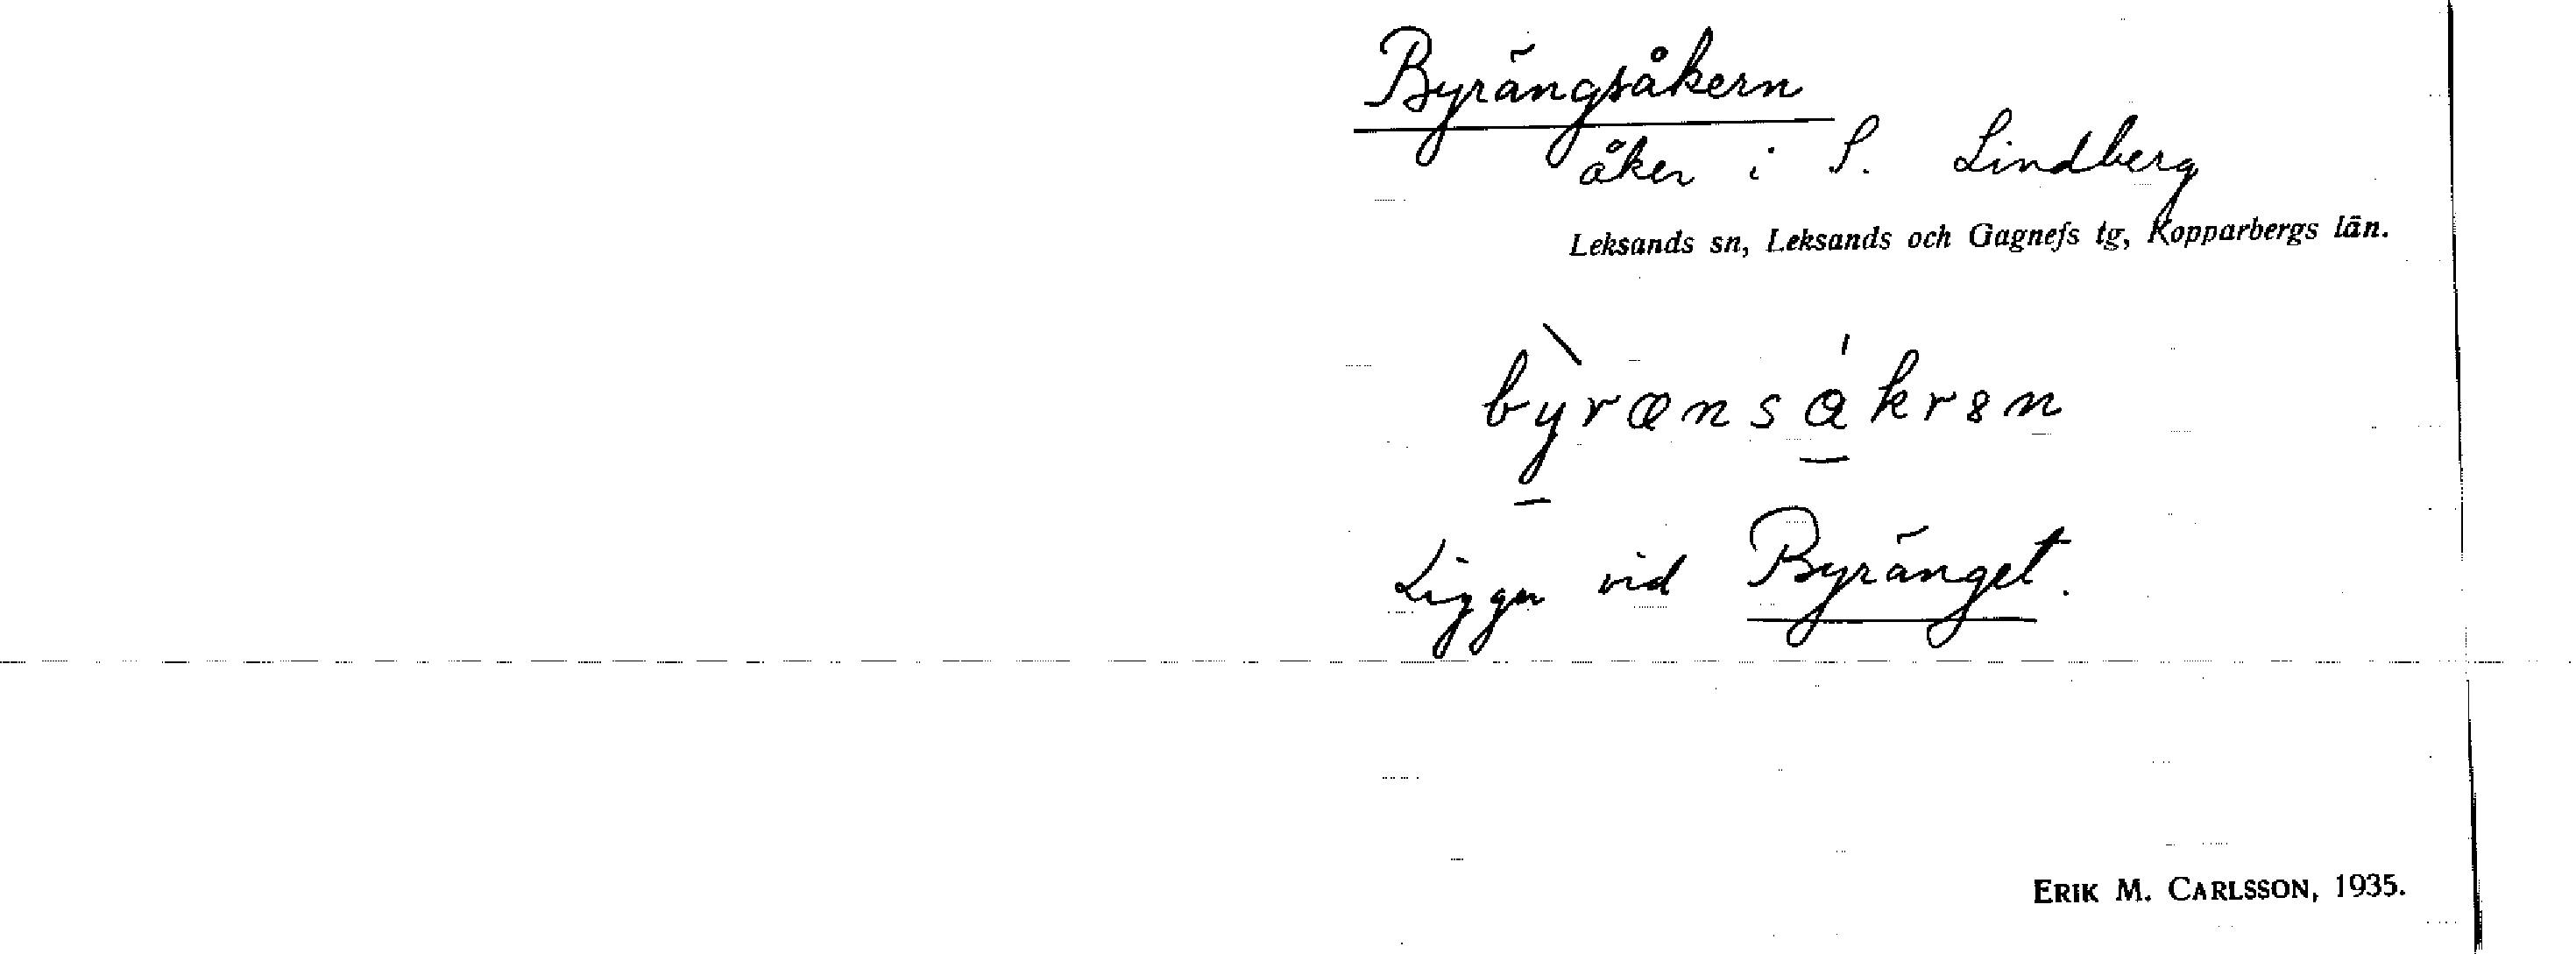 Byrängsåkern
åker i S. Lindberg
Leksands sn, Leksands och Gagnefs tg, Kopparbergs län.
Ligger vid Byränget.
ERIK M. CARLSSON, 1935.